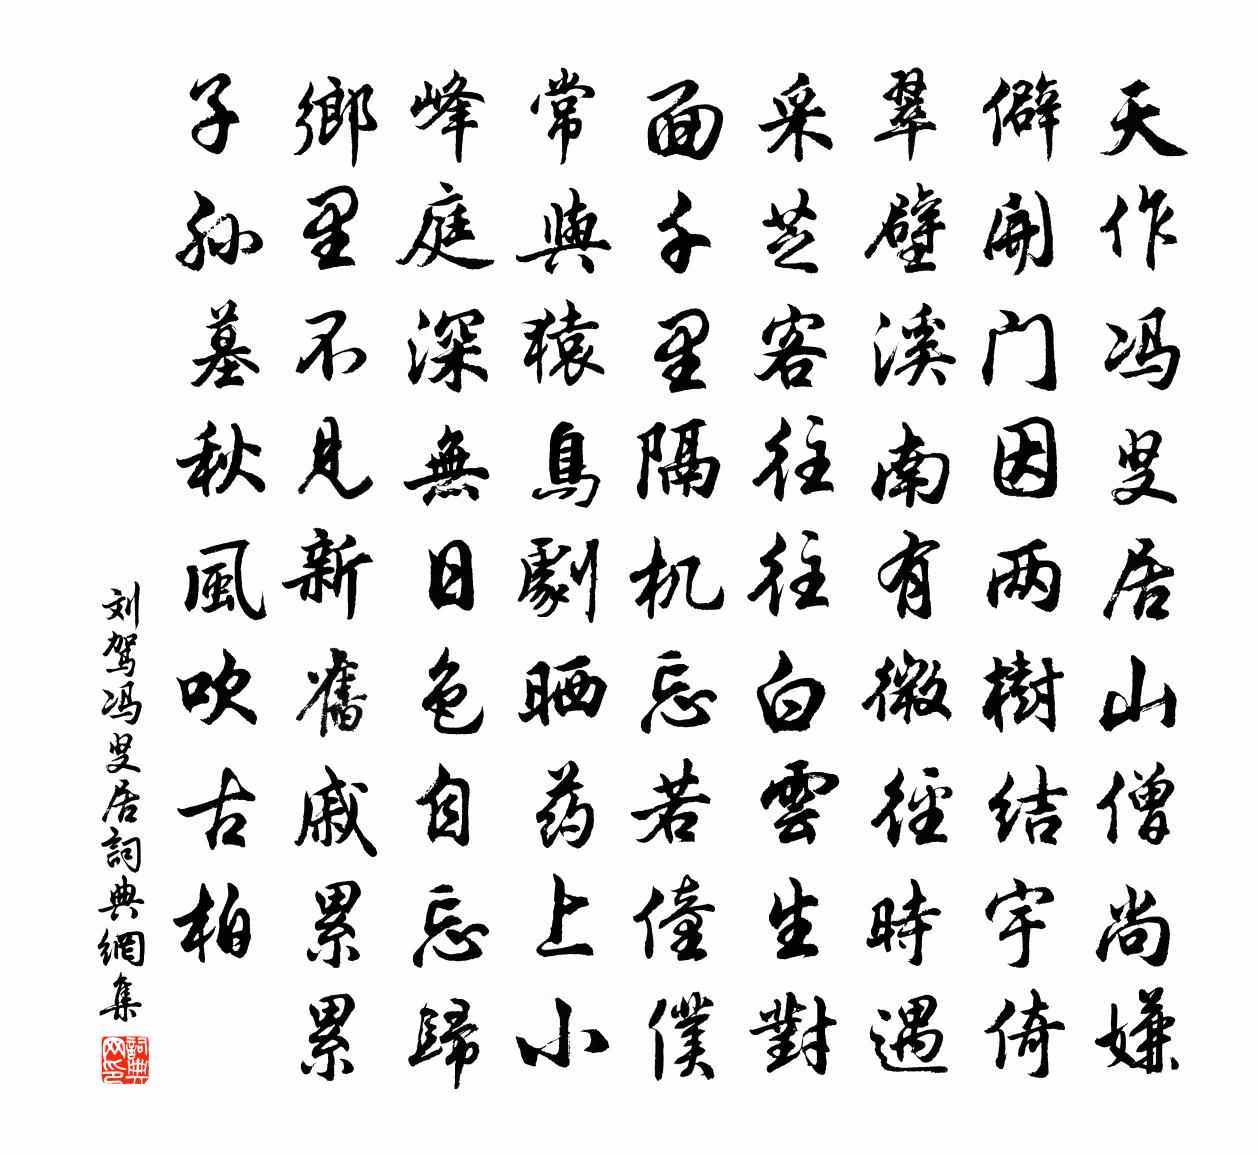 天作冯叟居山僧尚嫌
僻開门因两樹结宇倚
翠壁溪南有微径時遇
采芝客往往白雲生對
面千里隔机忘若僮僕
常與猿鳥劇晒药上小
峰庭深無日色自忘歸
鄉里不見新舊戚累累
子孙墓秋風吹古柏
刘驾冯叟居詞典網集
詞典网印